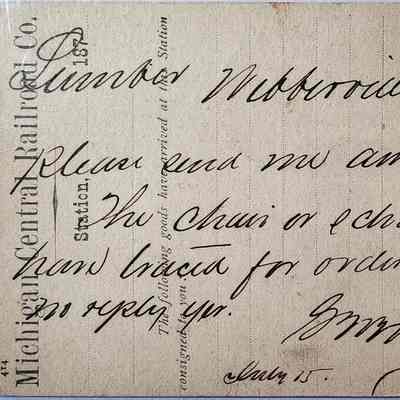 Michigan Central Railroad Co.
Station, 187
The following goods have arrived at this Station
consigned to you:
474
Lumber Webbervil
Please send me am
The chair or
have traced for order
no reply yet.
July 15.